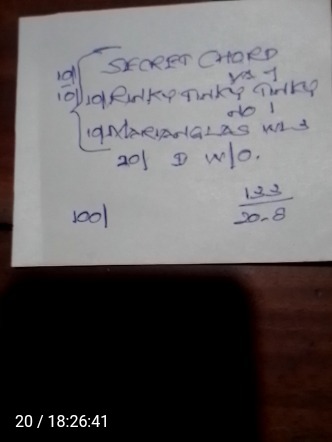 10/ SECRET CHORD
YS 7
10/ 10/ RINKY TINKY TINKY
NO 1
10/ MARIANGLAS W23
20/ D W/O.
133
100/ 20-8
20 / 18:26:41